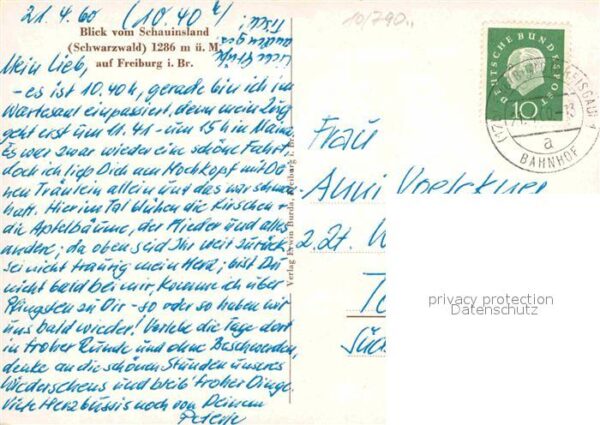 21.4.60 (10.40 h)
10/790..
Blick vom Schauinsland
(Schwarzwald) 1286 m ü. M.
auf Freiburg i. Br.
Mein Lieb,
- es ist 10.40 h, gerade bin ich im
Wartesaal einpassiert, denn mein Zug
geht erst um 11.41 - um 15 h in
Es war zwar wieder eine schöne Fahrt
doch ich ließ Dich am Hochkopf mit
Tränlein allein und das war schmerz-
haft. Hier im Tal blühen die Kirschen +
die Apfelbäume, der Flieder und alles
andere; da oben seid Ihr weit zurück -
sei nicht traurig mein Herz; bist Du
nicht bald bei mir, komme ich über
Pfingsten zu Dir - so oder so haben wir
uns bald wieder! Verlebe die Tage dort
in froher Runde und ohne Beschwerden,
denke an die schönen Stunden unseres
Wiedersehens und bleib' froher Dinge.
Viele Herzbussis noch von Deinem
Peterle
Verlag Erwin Burda, Freiburg i. Br.
DEUTSCHE BUNDESPOST
10
a
BAHNHOF
Frau
Anni
z. Zt.
privacy protection
Datenschutz